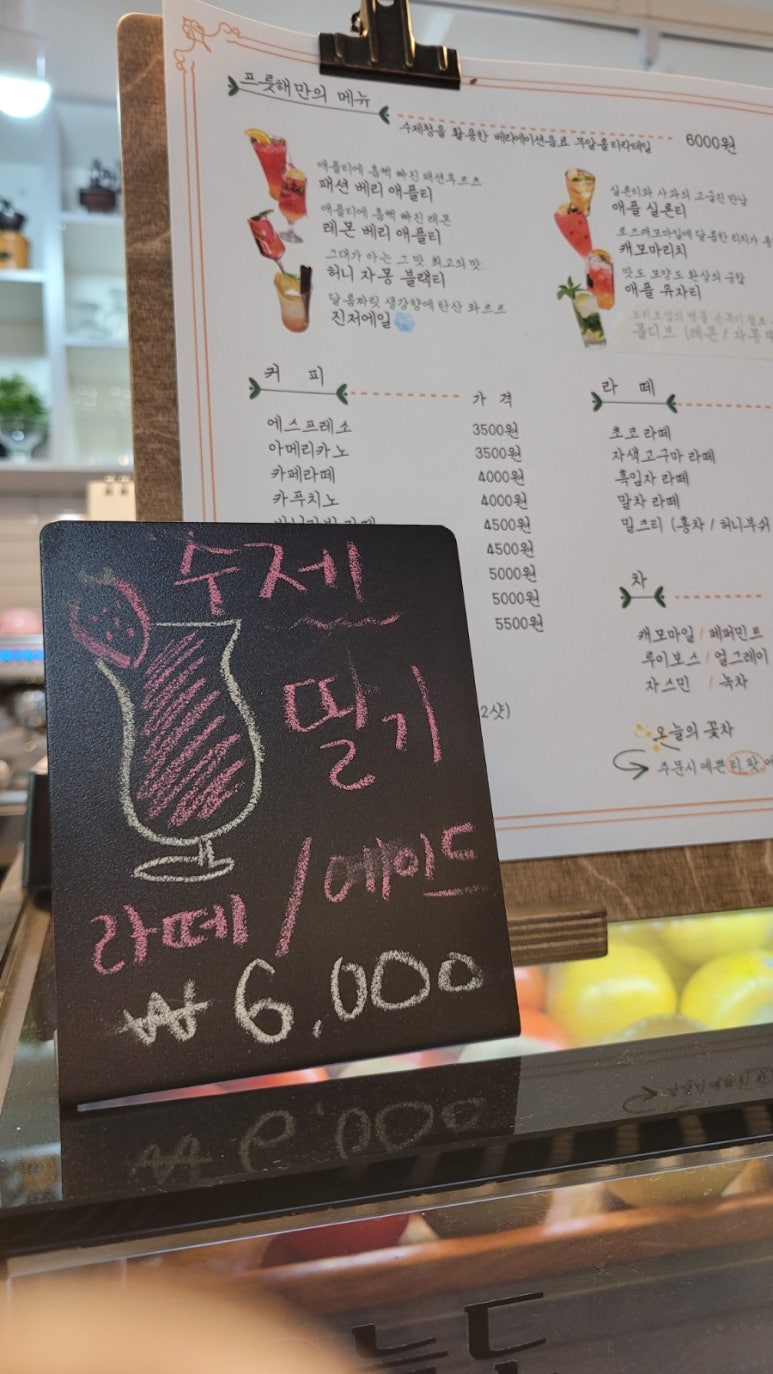 프룻해만의 메뉴
수제청을 활용한 베리에이션음료 무알콜 칵테일 6000원
애플티에 흠뻑 빠진 패션후르츠
패션 베리 애플티
애플티에 흠뻑 빠진 레몬
레몬 베리 애플티
그대가 아는 그 맛 최고의 맛
허니 자몽 블랙티
달콤짜릿 생강향에 탄산 와르르
진저에일
실론티와 사과의 고급진 만남
애플 실론티
로즈캐모마일에 달콤한 리치가
캐모마리치
맛도 모양도 환상의 궁합
애플 유자티
커 피
가 격
에스프레소 3500원
아메리카노 3500원
카페라떼 4000원
카푸치노 4000원
4500원
4500원
5000원
5000원
5500원
2샷)
라 떼
초코 라떼
자색고구마 라떼
흑임자 라떼
말차 라떼
밀크티 (홍차 / 허니부쉬
차
캐모마일 / 페퍼민트
루이보스 / 얼그레이
자스민 / 녹차
오늘의 꽃차
주문시 예쁜 티 팟에
수제
딸기
라떼 / 에이드
₩ 6,000